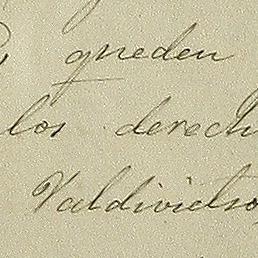 queden
los derech
Valdivielso